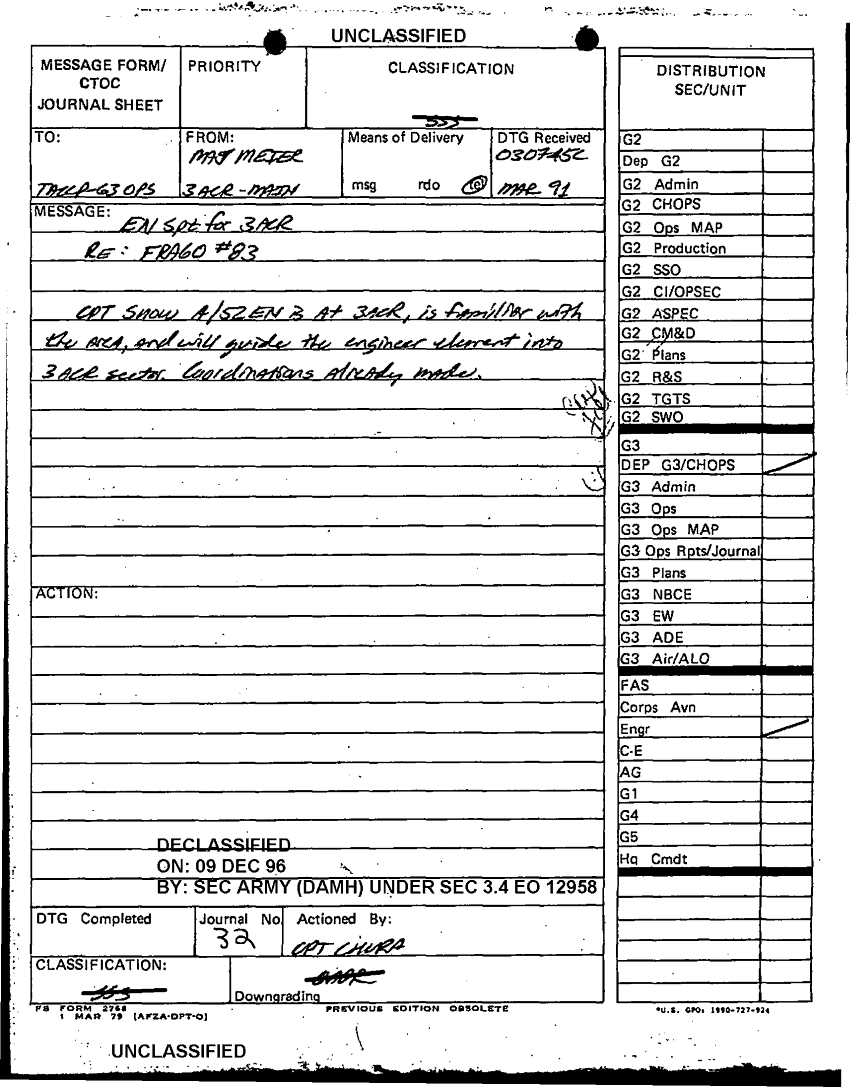 UNCLASSIFIED
MESSAGE FORM/
CTOC
JOURNAL SHEET
PRIORITY
CLASSIFICATION
TO:
TACCP-G3 OPS
FROM:
MAJ METER
3 ACR-MAIN
Means of Delivery
msg rdo tel
DTG Received
030745C
MAR 91
MESSAGE:
EN Spt for 3ACR
RE: FRAGO #83
CPT Snow A/52 EN B At 3ACR, is familiar with
the area, and will guide the engineer element into
3 ACR sector. Coordinations Already made.
ACTION:
DECLASSIFIED
ON: 09 DEC 96
BY: SEC ARMY (DAMH) UNDER SEC 3.4 EO 12958
DTG Completed
Journal No
32
Actioned By:
CPT CHURA
CLASSIFICATION:
Downgrading
FS FORM 2768
1 MAR 79 [AFZA-DPT-O]
PREVIOUS EDITION OBSOLETE
UNCLASSIFIED
DISTRIBUTION
SEC/UNIT
G2
Dep G2
G2 Admin
G2 CHOPS
G2 Ops MAP
G2 Production
G2 SSO
G2 CI/OPSEC
G2 ASPEC
G2 CM&D
G2 Plans
G2 R&S
G2 TGTS
G2 SWO
G3
DEP G3/CHOPS
G3 Admin
G3 Ops
G3 Ops MAP
G3 Ops Rpts/Journal
G3 Plans
G3 NBCE
G3 EW
G3 ADE
G3 Air/ALO
FAS
Corps Avn
Engr
C-E
AG
G1
G4
G5
Hq Cmdt
*U.S. GPO: 1990-727-924